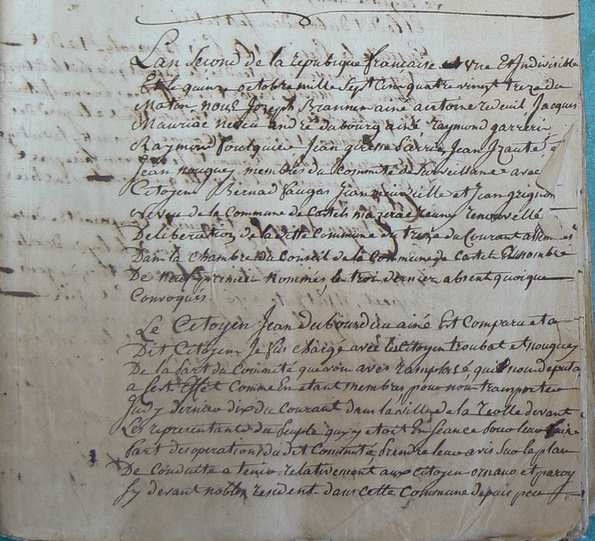 Lan Second de la republique francaise et une Et Indivisible
Et le quinze octobre mille Sept Cin quatre vingt treze du
Maton nous Joseph Brannes ainé antoine redeuil Jacques
Mauriac neveu andré dubourg ainé raymond garrere
Raymon Jean
Jean nouguey membres du Committé de Surveillance avec
Citoyens Bernad faugas Jean neuville et Jean grignon
de la Commune de Castels
Deliberation de laditte Commune du treze du Courant assemblés
Dans la chambre du Conseil de la Commune de Castet En nombre
De neuf premier nommés le troi dernier absent quoique
Convoqués
Le Citoyen Jean dubourdieu ainé Est Comparu et a
Dit Citoyens Je fus chargé avec le Citoyen troubat et nouguey
De la part du Committé que vous avés remplassé qui nous deputa
a Cest Effet Comme En etant membres pour nous transporter
Judy dernier dix du Courant dans la ville de la Reolle devant
Les representants du peuple quy y etoit En Seance pour leur faire
part des operations du dit Committé prendre leur avis Sur le plan
De Conduite a tenir relativement aux Citoyen
Sy devant nobles resident dans Cette Commune depuis peu